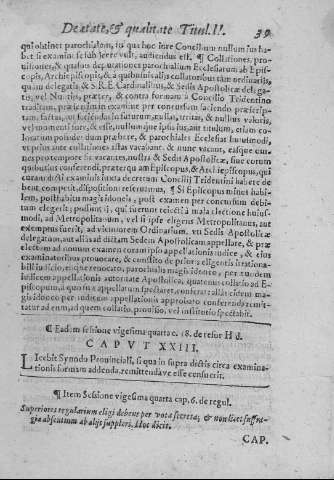 De ætate, & qualitate Titul. II. 39
qui obtinet parochialem, in qua hoc iure Concilium nullum ius ha-
bet si examini se subijcere velit, audiendus est. ¶ Collationes, pro-
uisiones, & quasuis deputationes parochialium Ecclesiarum ab Epis-
copis, Archiepiscopis, & à quibusuis alijs collatoribus tàm ordinarijs,
quàm delegatis & S.R.E. Cardinalibus, & Sedis Apostolicæ delega-
tis, vel Nuntijs, præter, & contra formam à Concilio Tridentino
traditam, præsertim in examine per concursum faciendo præscrip-
tam, factas, aut faciendas futurum, nullas, irritas, & nullius valoris,
vel momenti fore, & esse, nullumque ipsis ius, aut titulum, etiam co-
loratum posidendi præbere, & parochiales Ecclesias huiusmodi,
vt prius ante collationes istas vacabant, & nunc vacant, easque cun-
nostra & Sedis Apostolicæ, siue eorum
quibus ius conferendi, præterquàm Episcopus & Archiepiscopus, qui
curam dicti examinis iuxta decretum Concilij Tridentini habere de-
bent, competit, dispositioni reseruamus, ¶ Si Episcopus minus habi-
lem, posthabitis magis idoneis, post examen per concursum debi-
tum elegerit; possunt ij, qui fuerunt reiecti à mala electione huius-
modi, ad Metropolitanum, vel si ipse eligens Metropolitanus, aut
exemptus fuerit, ad viciniorem Ordinarium, vti Sedis Apostolicæ
delegatum, aut aliàs ad dictam Sedem Apostolicam appellare, & præ
electum ad nouum examen coram ipso appellationis iudice, & eius
examinatoribus prouocare, & constito de prioris eligentis irrationa-
bili iudicio, eoque reuocato, parochialis magis idoneo, per eundem
iudicem appellationis autoritate Apostolica, quatenus collatio ad E-
piscopum, à quo sit appellatum spectaret, conferatur
magis idoneo per iudicem appellationis approbato conferendo remit-
tatur ad eum, ad quem collatio, prouisio, vel institutio spectabit.
¶ Eadem sessione vigesima quarta c. 18. de refor H d.
CAPVT XXIII.
Licebit Synodo Prouinciali, si qua in supra dictis circa examina-
tionis formam addenda, remittenda ve esse censuerit.
¶ Item Sessione vigesima quarta cap. 6. de regul.
Superiores regularium eligi debent per vota secreta; & non licet suffra-
gia absentium ab alijs suppleri. Hoc dicit.
CAP.